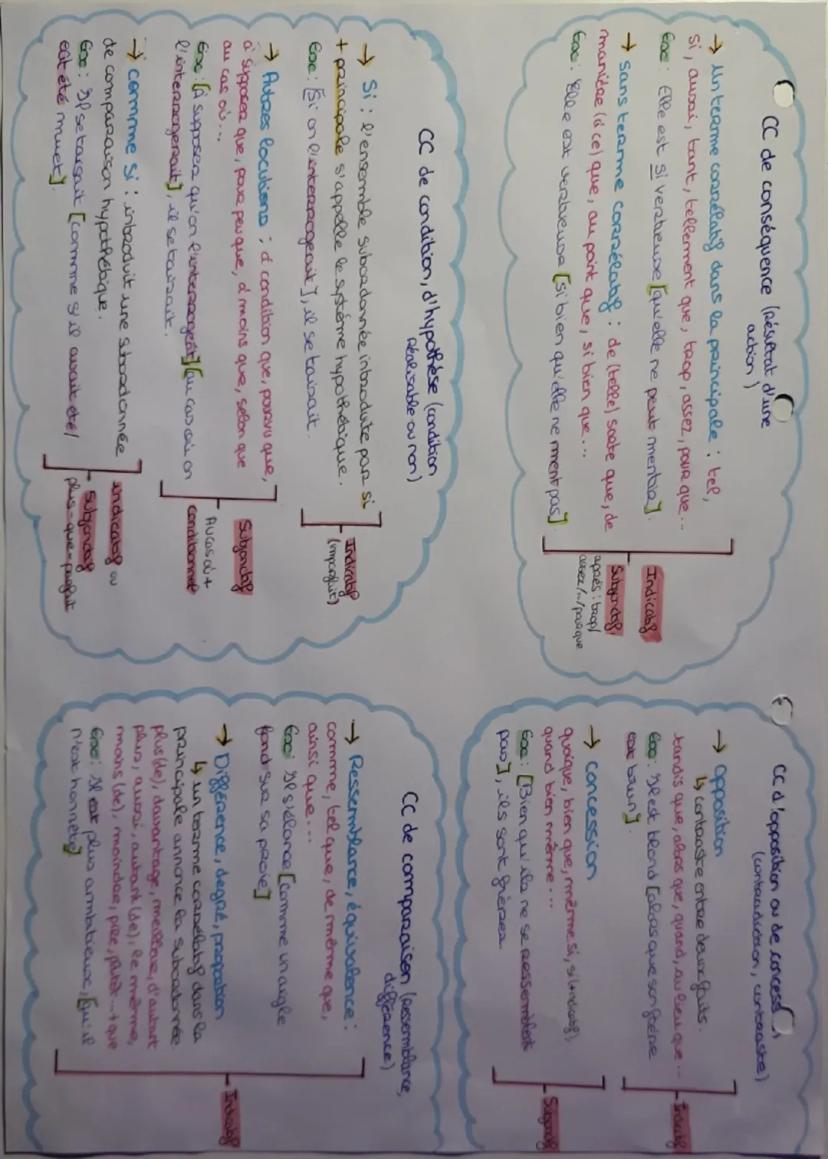 CC de conséquence (Résultat d'une
action)
→ un terme corrélatif dans la principale : tel,
si, aussi, tant, tellement que, trop, assez, pour que...
Exe : Elle est si vertueuse [qu'elle ne peut mentir].
→ sans terme corrélatif : de (telle) sorte que, de
manière (à ce) que, au point que, si bien que...
Exe : Elle est vertueuse [si bien qu'elle ne ment pas]
Indicatif
Subjonctif
après : trop/
assez/.../pour que
CC de condition, d'hypothèse (condition
réalisable ou non)
→ Si : l'ensemble subordonnée introduite par si
+ principale s'appelle le système hypothétique.
Exe : [Si on l'interrogeait], il se taisait.
Indicatif
(imparfait)
→ Autres locutions : à condition que, pourvu que,
à supposer que, pour peu que, à moins que, selon que
au cas où...
Exe : [À supposer qu'on l'interrogeât] [au cas où on
l'interrogerait], il se taisait.
Subjonctif
Au cas où +
conditionnel
→ comme si : introduit une subordonnée
de comparaison hypothétique.
Exe : Il se taisait [comme s'il avait été/
eût été muet].
indicatif ou
subjonctif
plus-que-parfait
CC d'opposition ou de concess
(contradiction, contraste)
→ opposition
↳ contraste entre deux faits.
tandis que, alors que, quand, au lieu que...
Exe : Il est blond [alors que son frère
est brun]
Indicatif
→ concession
quoique, bien que, même si, si (indicatif),
quand bien même...
Exe : [Bien qu'ils ne se ressemblent
pas], ils sont frères.
Subjonctif
CC de comparaison (ressemblance,
différence)
→ Ressemblance, équivalence :
comme, tel que, de même que,
ainsi que...
Exe : Il s'élance [comme un aigle
fond sur sa proie]
→ Différence, degré, proportion
↳ un terme corrélatif dans la
principale annonce la subordonnée.
plus (de), davantage, meilleur, d'autant
plus, aussi, autant (de), le même,
moins (de), moindre, pire, plutôt...+ que
Exe : Il est plus ambitieux, [qu'il
n'est honnête]
Indicatif